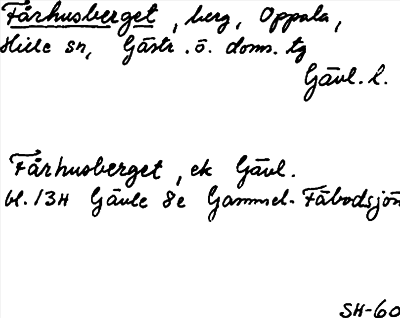 Fårhusberget, berg, Oppala,
Hille sn, Gästr. ö. doms. tg
Gävl. l.
Fårhusberget, ek Gävl.
bl. 13H Gävle 8e Gammel-Fäbodsjön
SH-60